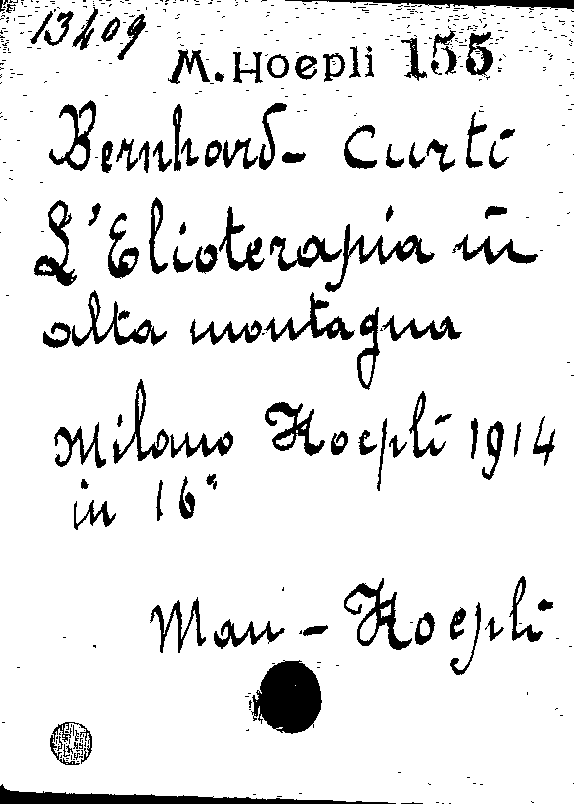 13409
M. Hoepli 155
Bernhard - Curti
L'Elioterapia in
alta montagna
Milano Hoepli 1914
in 16°
Man - Hoepli